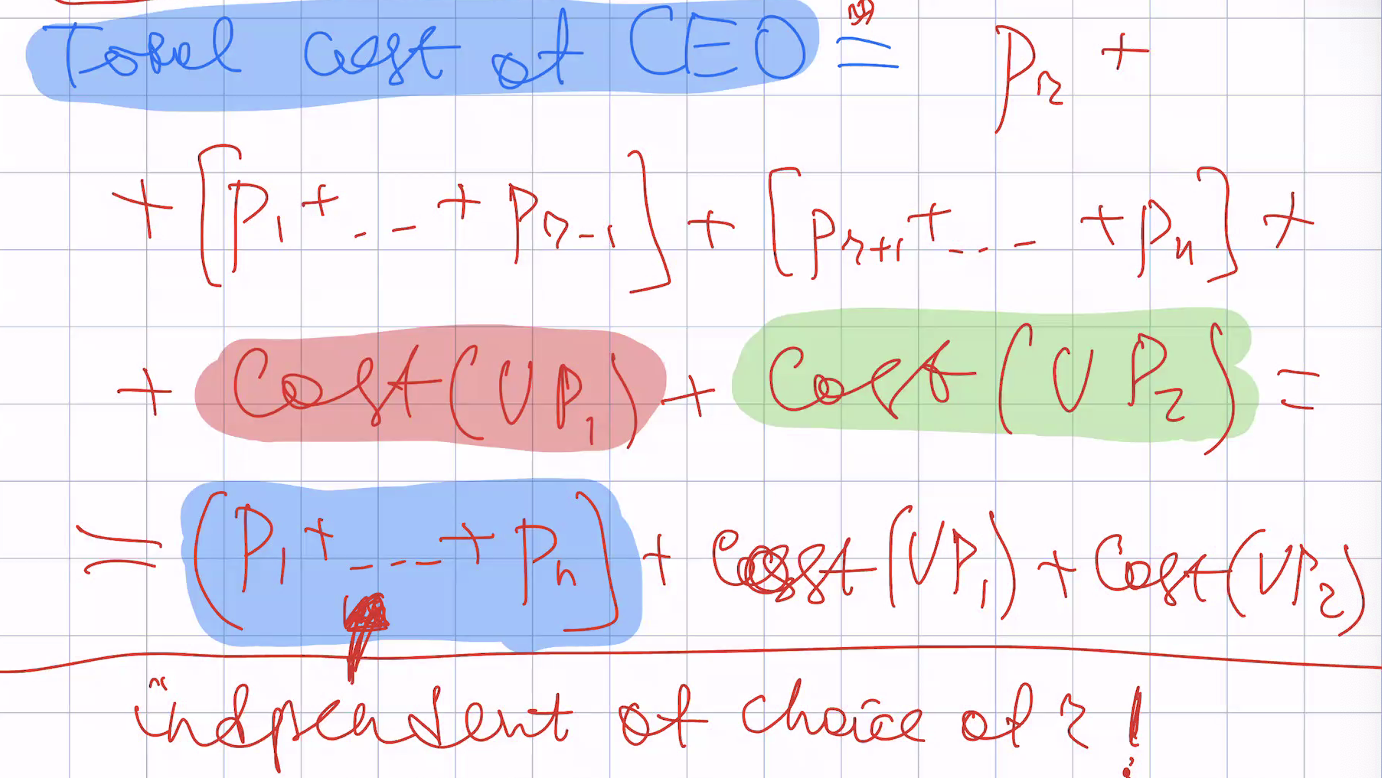 Total cost of CEO = p_r +
+ [p_1 + ... + p_{r-1}] + [p_{r+1} + ... + p_n] +
+ Cost(VP_1) + Cost(VP_2) =
= (p_1 + ... + p_n) + Cost(VP_1) + Cost(VP_2)
indpendent of choice of r!